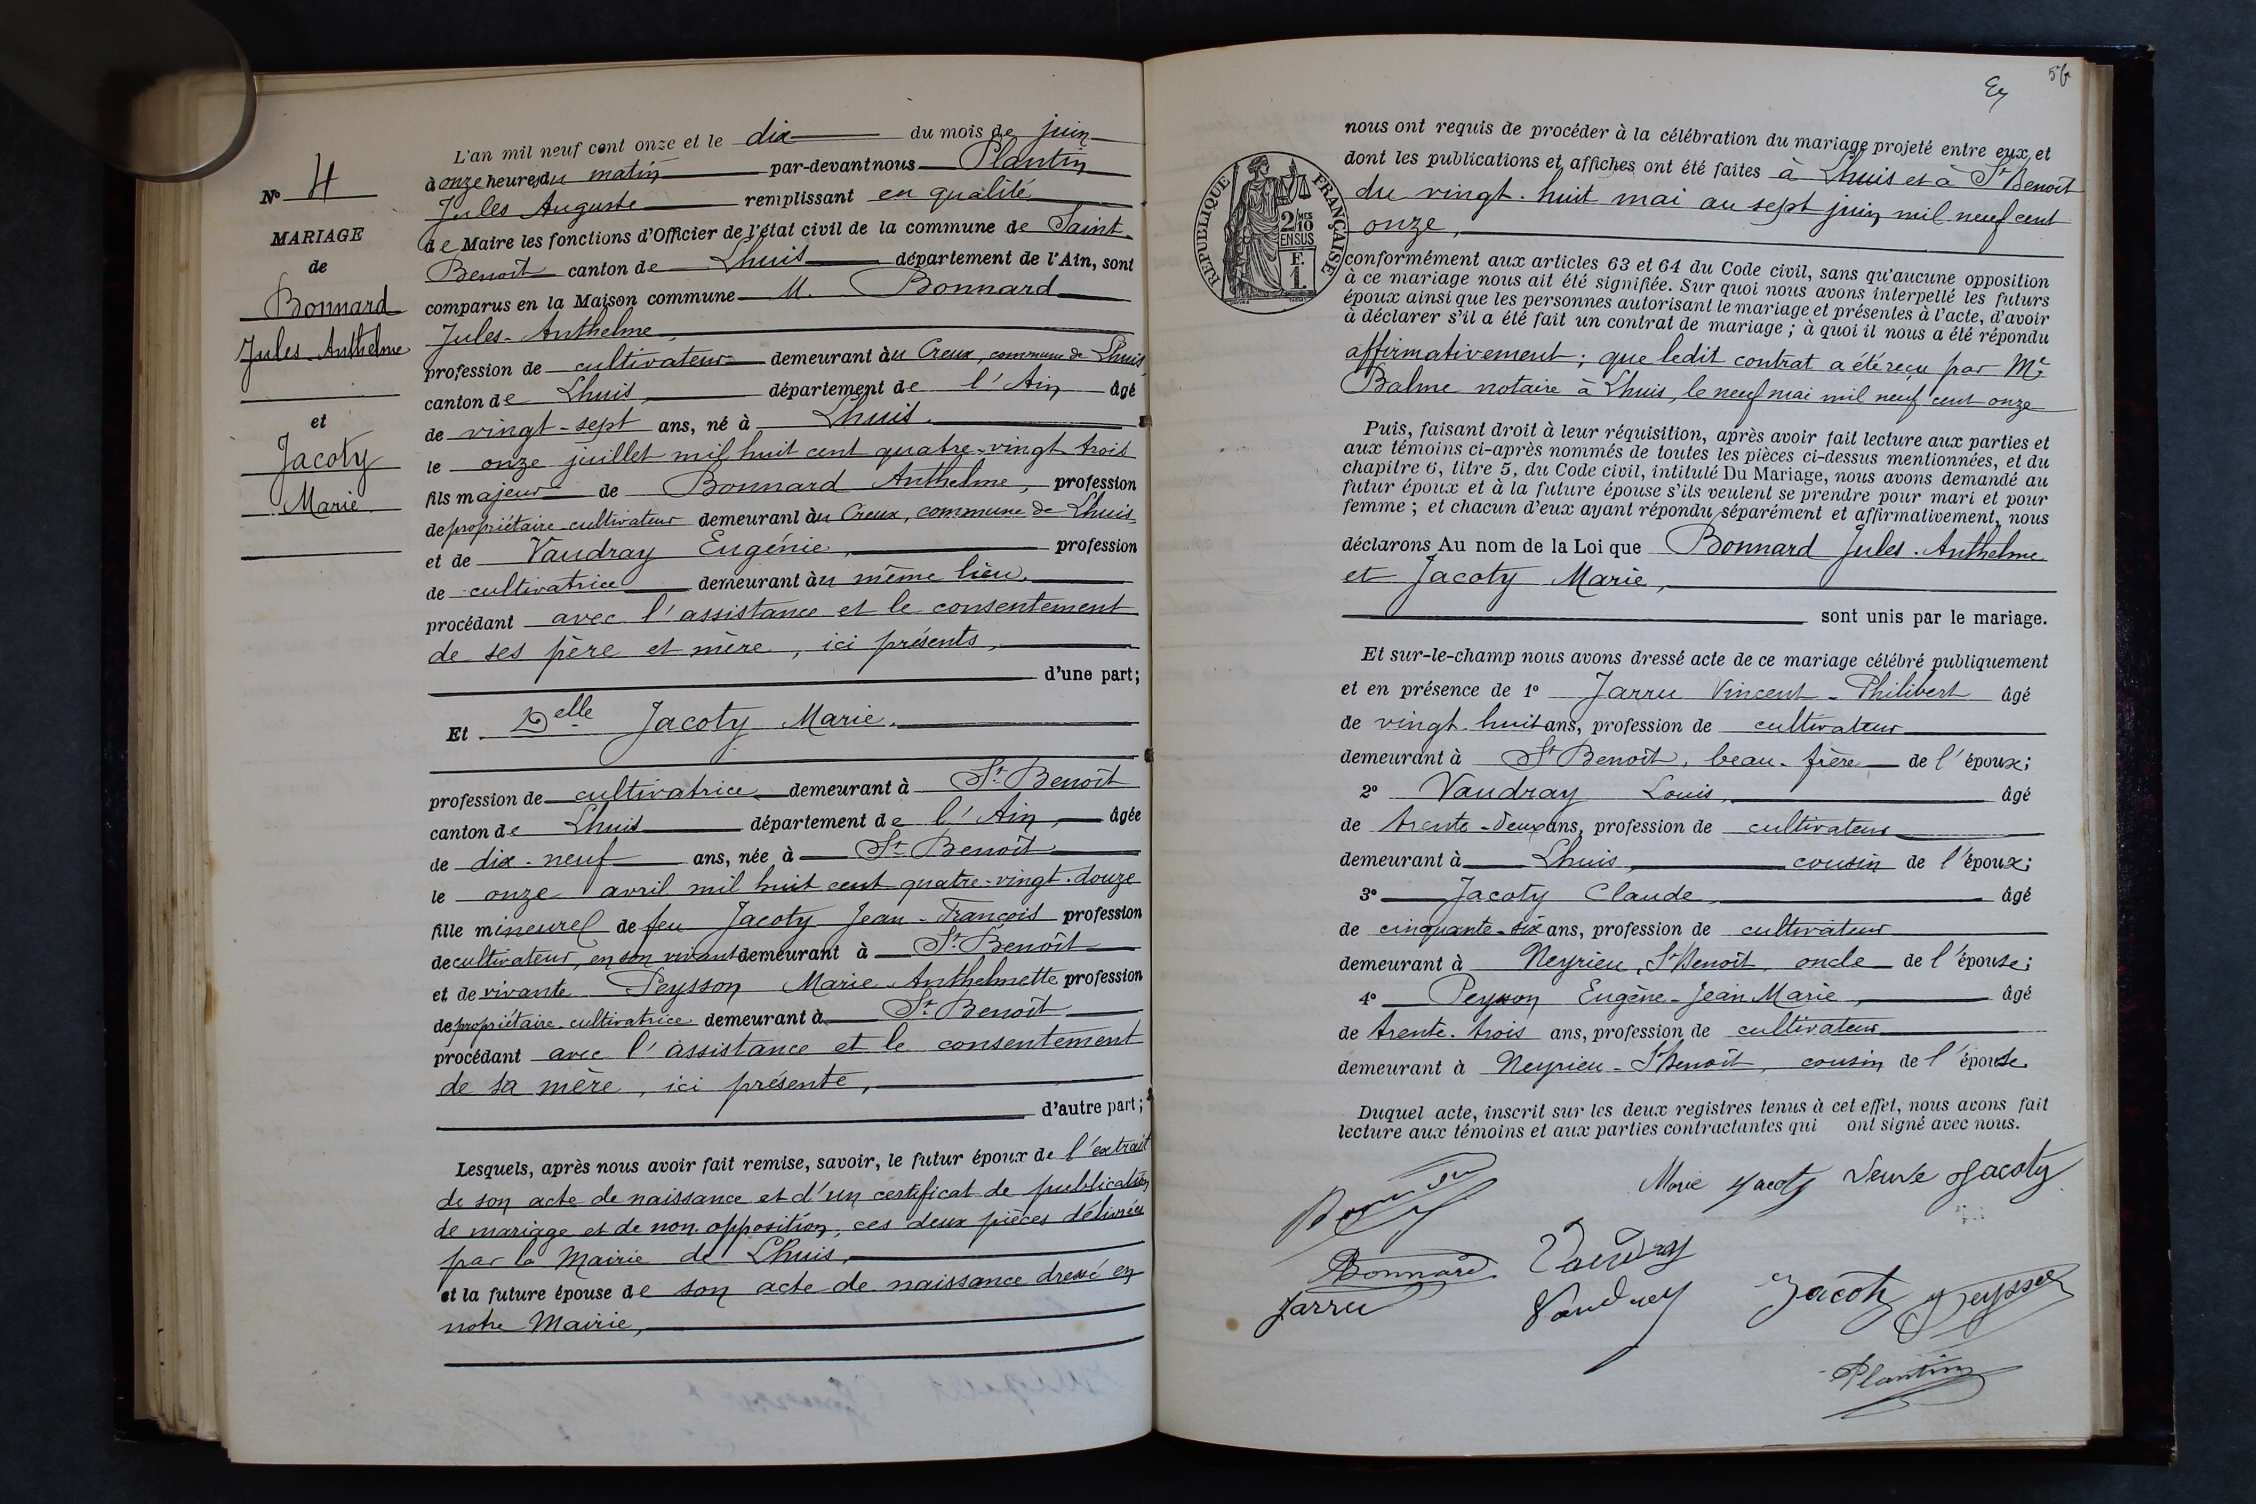 N° 4
MARIAGE
de
Bonnard
Jules-Anthelme
et
Jacoty
Marie
L'an mil neuf cent onze et le dix du mois de juin
à onze heures du matin par-devant nous Plantin
Jules Auguste remplissant en qualité
de Maire les fonctions d'Officier de l'état civil de la commune de Saint-
Benoît canton de Lhuis département de l'Ain, sont
comparus en la Maison commune M. Bonnard
Jules-Anthelme,
profession de cultivateur demeurant au Creux, commune de Lhuis
canton de Lhuis, département de l'Ain âgé
de vingt-sept ans, né à Lhuis.
le onze juillet mil huit cent quatre-vingt trois
fils majeur de Bonnard Anthelme, profession
de propriétaire-cultivateur demeurant au Creux, commune de Lhuis,
et de Vaudray Eugénie, profession
de cultivatrice demeurant au même lieu,
procédant avec l'assistance et le consentement
de ses père et mère, ici présents,
d'une part;
Et Delle Jacoty Marie.
profession de cultivatrice demeurant à St Benoît
canton de Lhuis département de l'Ain, âgée
de dix-neuf ans, née à St Benoît
le onze avril mil huit cent quatre-vingt-douze
fille mineure de feu Jacoty Jean-François profession
de cultivateur, en son vivant demeurant à St Benoît
et de vivante Peysson Marie Anthelmette profession
de propriétaire-cultivatrice demeurant à St Benoît
procédant avec l'assistance et le consentement
de sa mère, ici présente,
d'autre part;
Lesquels, après nous avoir fait remise, savoir, le futur époux de l'extrait
de son acte de naissance et d'un certificat de publication
de mariage et de non opposition, ces deux pièces délivrées
par la Mairie de Lhuis,
et la future épouse de son acte de naissance dressé en
notre Mairie,
56
RÉPUBLIQUE FRANÇAISE
2/10
EN SUS
F.
1.
nous ont requis de procéder à la célébration du mariage projeté entre eux et
dont les publications et affiches ont été faites à Lhuis et à St Benoît
du vingt-huit mai au sept juin mil neuf cent
onze,
conformément aux articles 63 et 64 du Code civil, sans qu'aucune opposition
à ce mariage nous ait été signifiée. Sur quoi nous avons interpellé les futurs
époux ainsi que les personnes autorisant le mariage et présentes à l'acte, d'avoir
à déclarer s'il a été fait un contrat de mariage; à quoi il nous a été répondu
affirmativement; que ledit contrat a été reçu par Me
Balme notaire à Lhuis, le neuf mai mil neuf cent onze
Puis, faisant droit à leur réquisition, après avoir fait lecture aux parties et
aux témoins ci-après nommés de toutes les pièces ci-dessus mentionnées, et du
chapitre 6, titre 5, du Code civil, intitulé Du Mariage, nous avons demandé au
futur époux et à la future épouse s'ils veulent se prendre pour mari et pour
femme; et chacun d'eux ayant répondu séparément et affirmativement, nous
déclarons Au nom de la Loi que Bonnard Jules-Anthelme
et Jacoty Marie,
sont unis par le mariage.
Et sur-le-champ nous avons dressé acte de ce mariage célébré publiquement
et en présence de 1° Jarru Vincent-Philibert âgé
de vingt-huit ans, profession de cultivateur
demeurant à St Benoît, beau-frère de l'époux;
2° Vaudray Louis, âgé
de trente-deux ans, profession de cultivateur
demeurant à Lhuis, cousin de l'époux;
3° Jacoty Claude, âgé
de cinquante-six ans, profession de cultivateur
demeurant à Neyrieu, St Benoît, oncle de l'épouse;
4° Peysson Eugène-Jean Marie, âgé
de trente-trois ans, profession de cultivateur
demeurant à Neyrieu-St Benoît, cousin de l'épouse
Duquel acte, inscrit sur les deux registres tenus à cet effet, nous avons fait
lecture aux témoins et aux parties contractantes qui ont signé avec nous.
Marie Jacoty Veuve Jacoty
Bonnard Vaudray
Jarru Vaudray Jacoty Peysson
Plantin